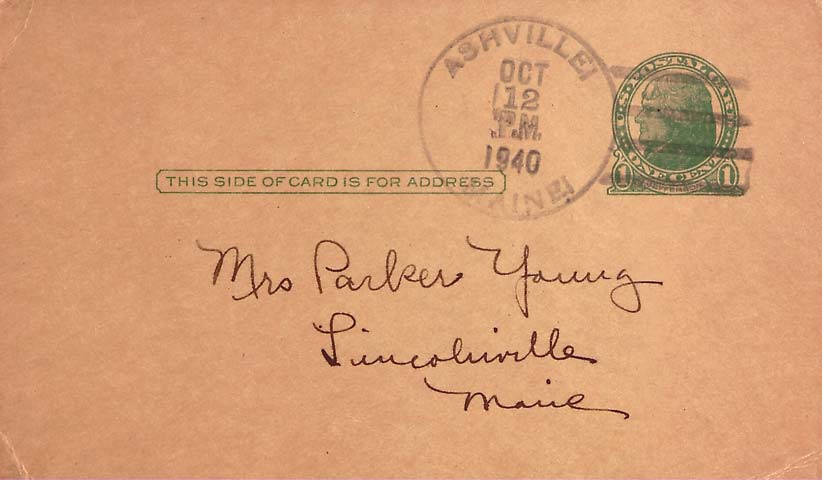 ASHVILLE
OCT
12
P.M.
1940
MAINE
U.S. POSTAL CARD
ONE CENT
1 JEFFERSON 1
THIS SIDE OF CARD IS FOR ADDRESS
Mrs Parker Young
Lincolnville
Maine